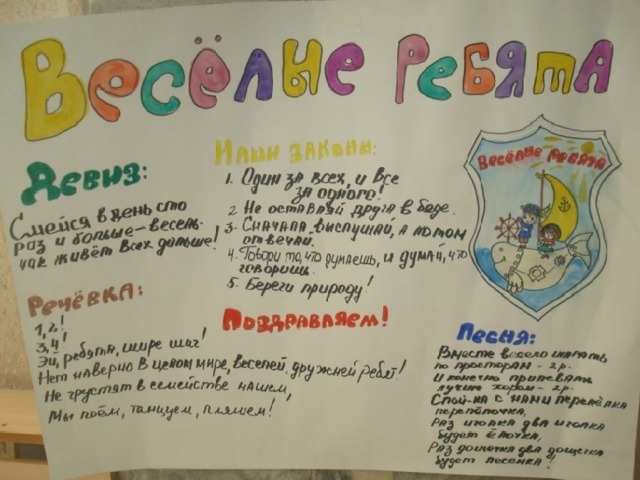 Весёлые ребята
Девиз:
Смейся в день сто
раз и больше – весель-
чак живёт всех дольше!
Речёвка:
1, 2!
3, 4!
Эй, ребята, шире шаг!
Нет наверно в целом мире, веселей, дружней ребят!
Не грустят в семействе нашем,
Мы поём, танцуем, пляшем!
Наши законы:
1. Один за всех, и все
за одного!
2. Не оставляй друга в беде.
3. Сначала выслушай, а потом
отвечай.
4. Говори то, что думаешь, и думай, что
говоришь.
5. Береги природу!
Поздравляем!
Весёлые ребята
Песня:
Вместе весело шагать
по просторам – 2р.
И конечно припевать
лучше хором – 2р.
Спой-ка с нами перепёлка
перепёлочка,
Раз иголка два иголка
будет ёлочка,
Раз дощечка два дощечка
будет лесенка!